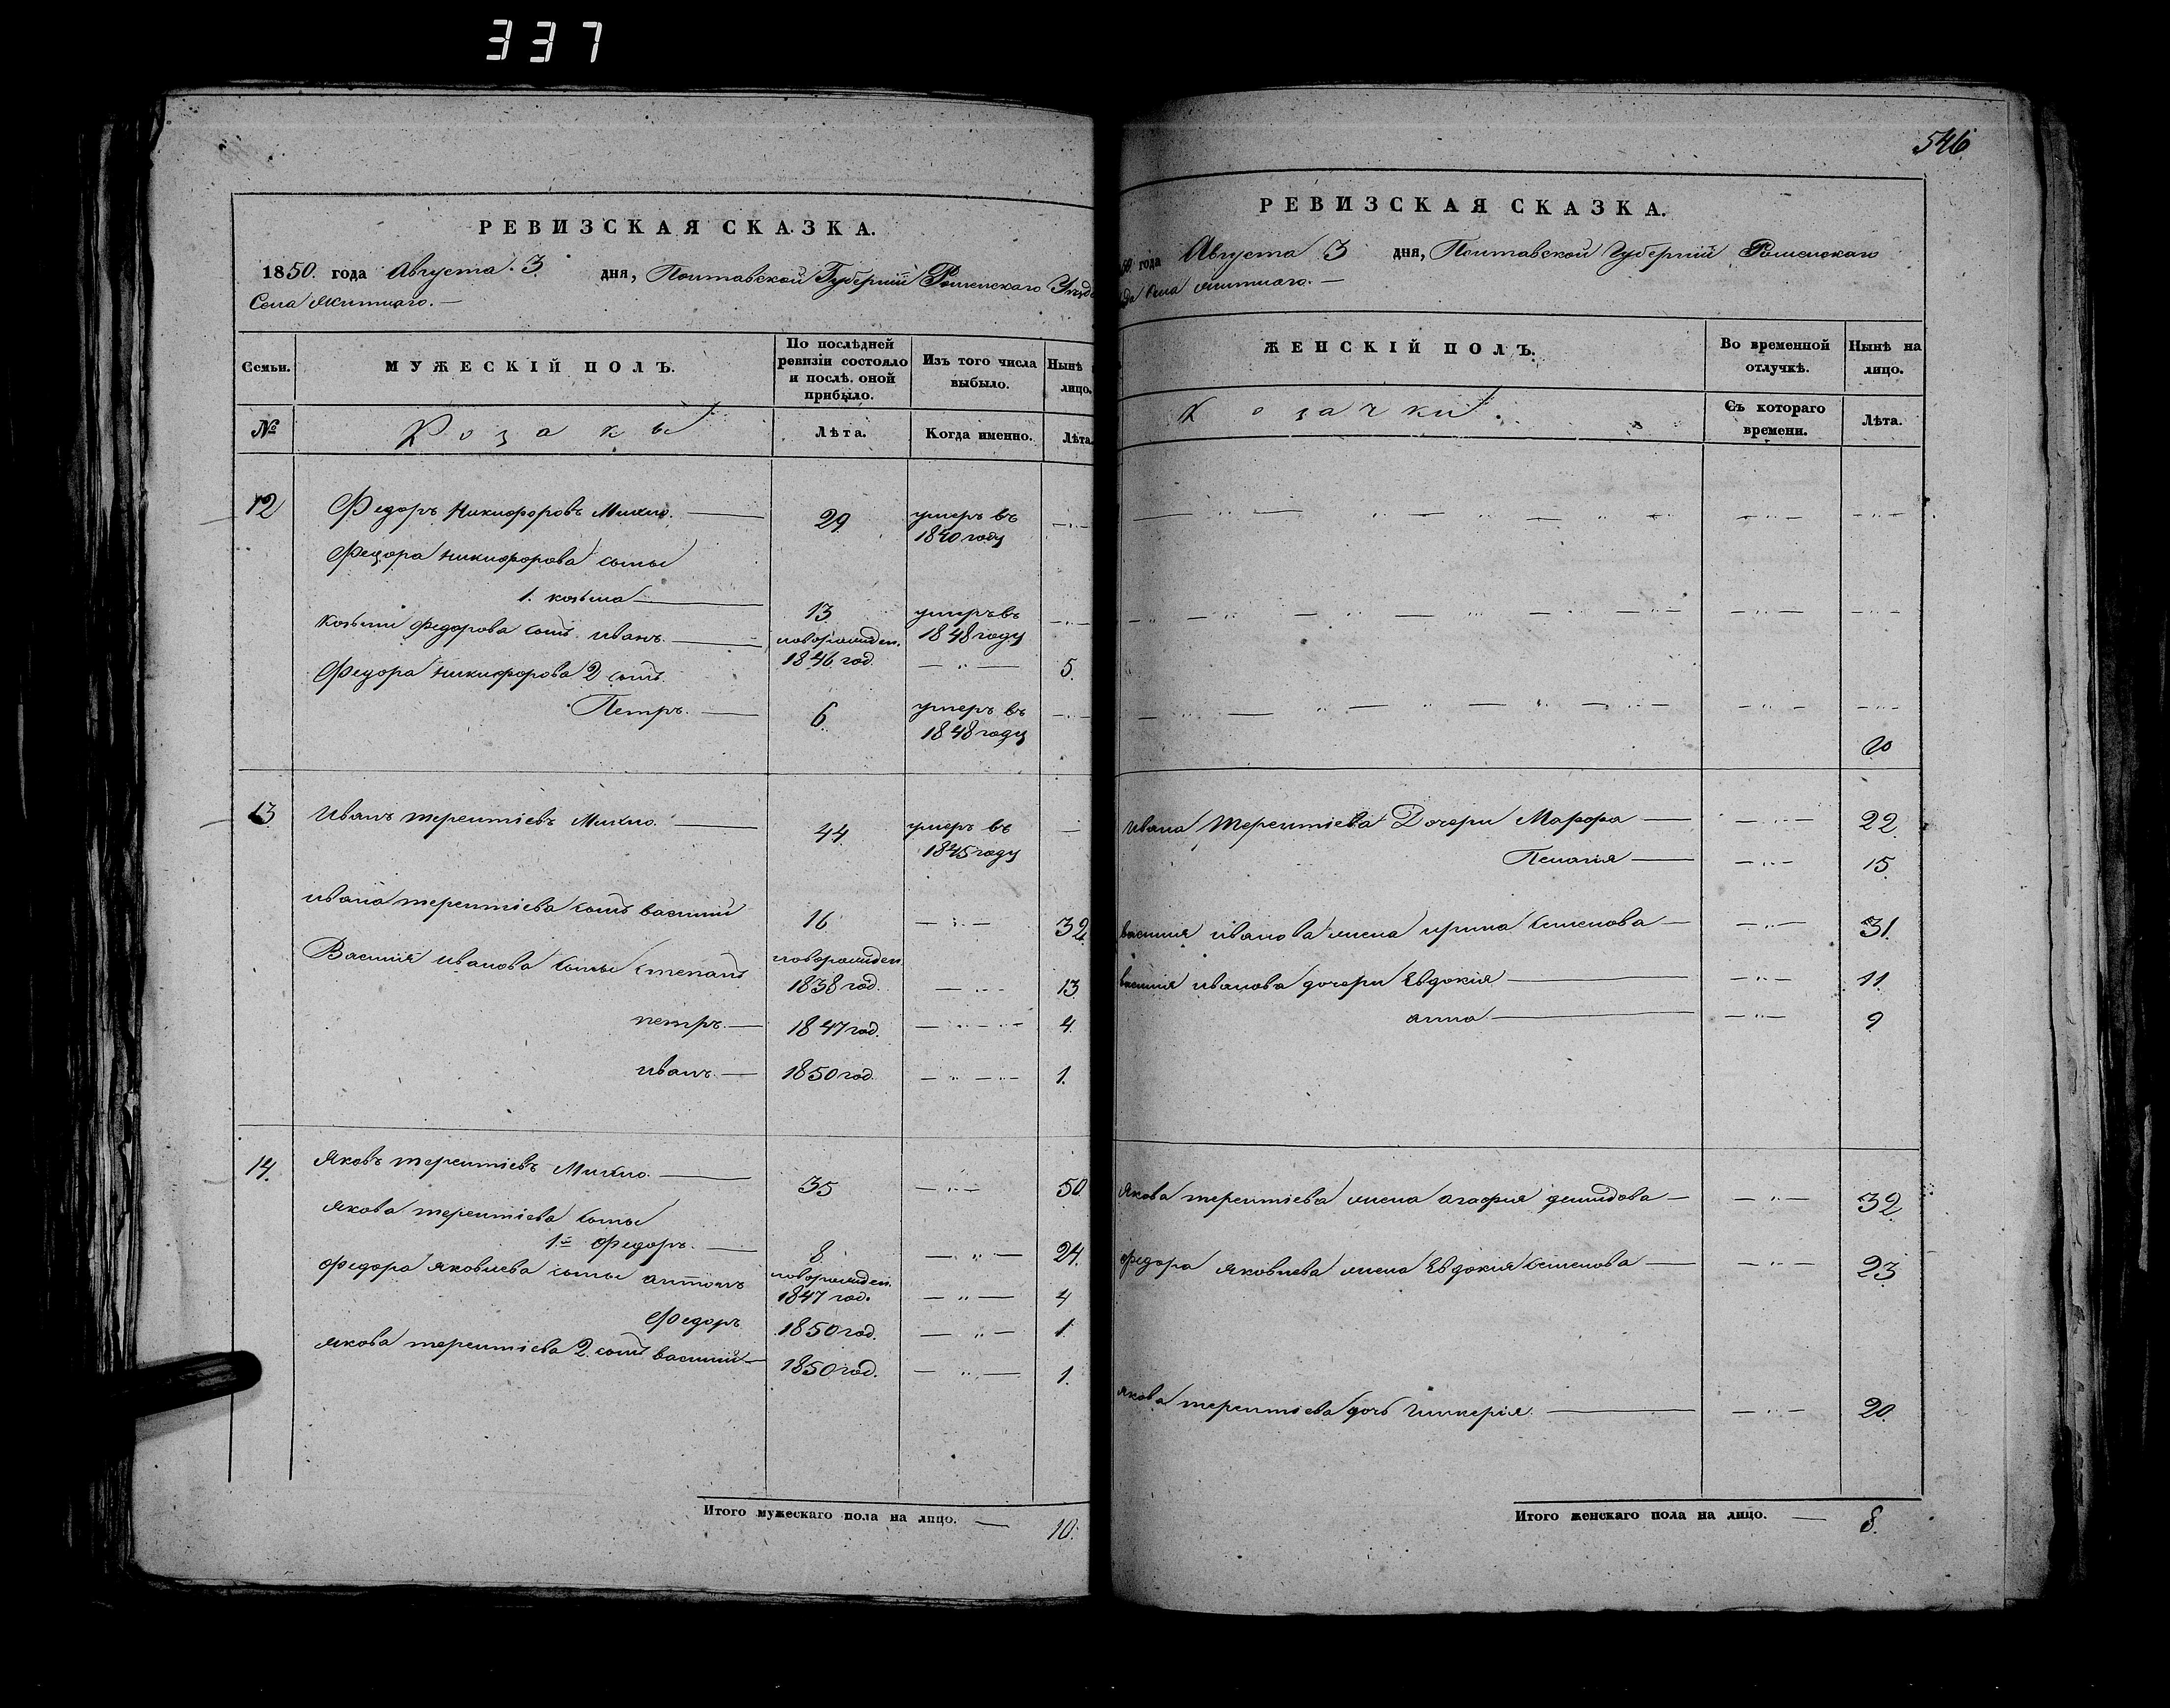 337
РЕВИЗСКАЯ СКАЗКА.
1850. года Августа 3 дня, Полтавской Губерніи Роменскаго Уѣзда
Села
Семьи.
МУЖЕСКІЙ ПОЛЪ.
По послѣдней ревизіи состояло и послѣ оной прибыло.
Изъ того числа выбыло.
Нынѣ лицо.
№
Козаки
Лѣта.
Когда именно.
Лѣта.
12 Федоръ Никифоровъ 29 умеръ въ 1840 году
Федора Никифорова сыны
1. козьма 13 умеръ въ 1848 году
Козьми Федорова сынъ иванъ. новорожден. 1846 год. 5.
Федора Никифорова 2 сынъ
Петръ. 6. умеръ въ 1848 году
13 Иванъ терентіевъ 44. умеръ въ 1845 году
ивана терентіева сынъ василий 16 32
Василія иванова сыны степанъ новорожден 1838 год. 13
петръ. 1847 год. 4.
иванъ. 1850 год. 1.
14. Яковъ терентіевъ 35 50
якова терентіева сыны
1й Федоръ. 8 24.
Федора яковлева сыны антонъ новорожден. 1847 год. 4
Федоръ 1850 год. 1.
якова терентіева 2. сынъ василий 1850 год. 1.
Итого мужескаго пола на лицо. 10.
546
РЕВИЗСКАЯ СКАЗКА.
года Августа 3 дня, Полтавской Губерніи Роменскаго
Села
ЖЕНСКІЙ ПОЛЪ.
Во временной отлучкѣ.
Нынѣ на лицо.
Козачки.
Съ котораго времени.
Лѣта.
ивана Терентіева Дочери Марфа 22
Пелагія 15
василия иванова жена ирина семенова 31.
василия иванова дочери Евдокія 11.
анна 9
якова терентіева жена агафия демидова 32
федора яковлева жена Евдокия семенова 23
якова терентіева дочь гликерія. 20
Итого женскаго пола на лицо. 8.